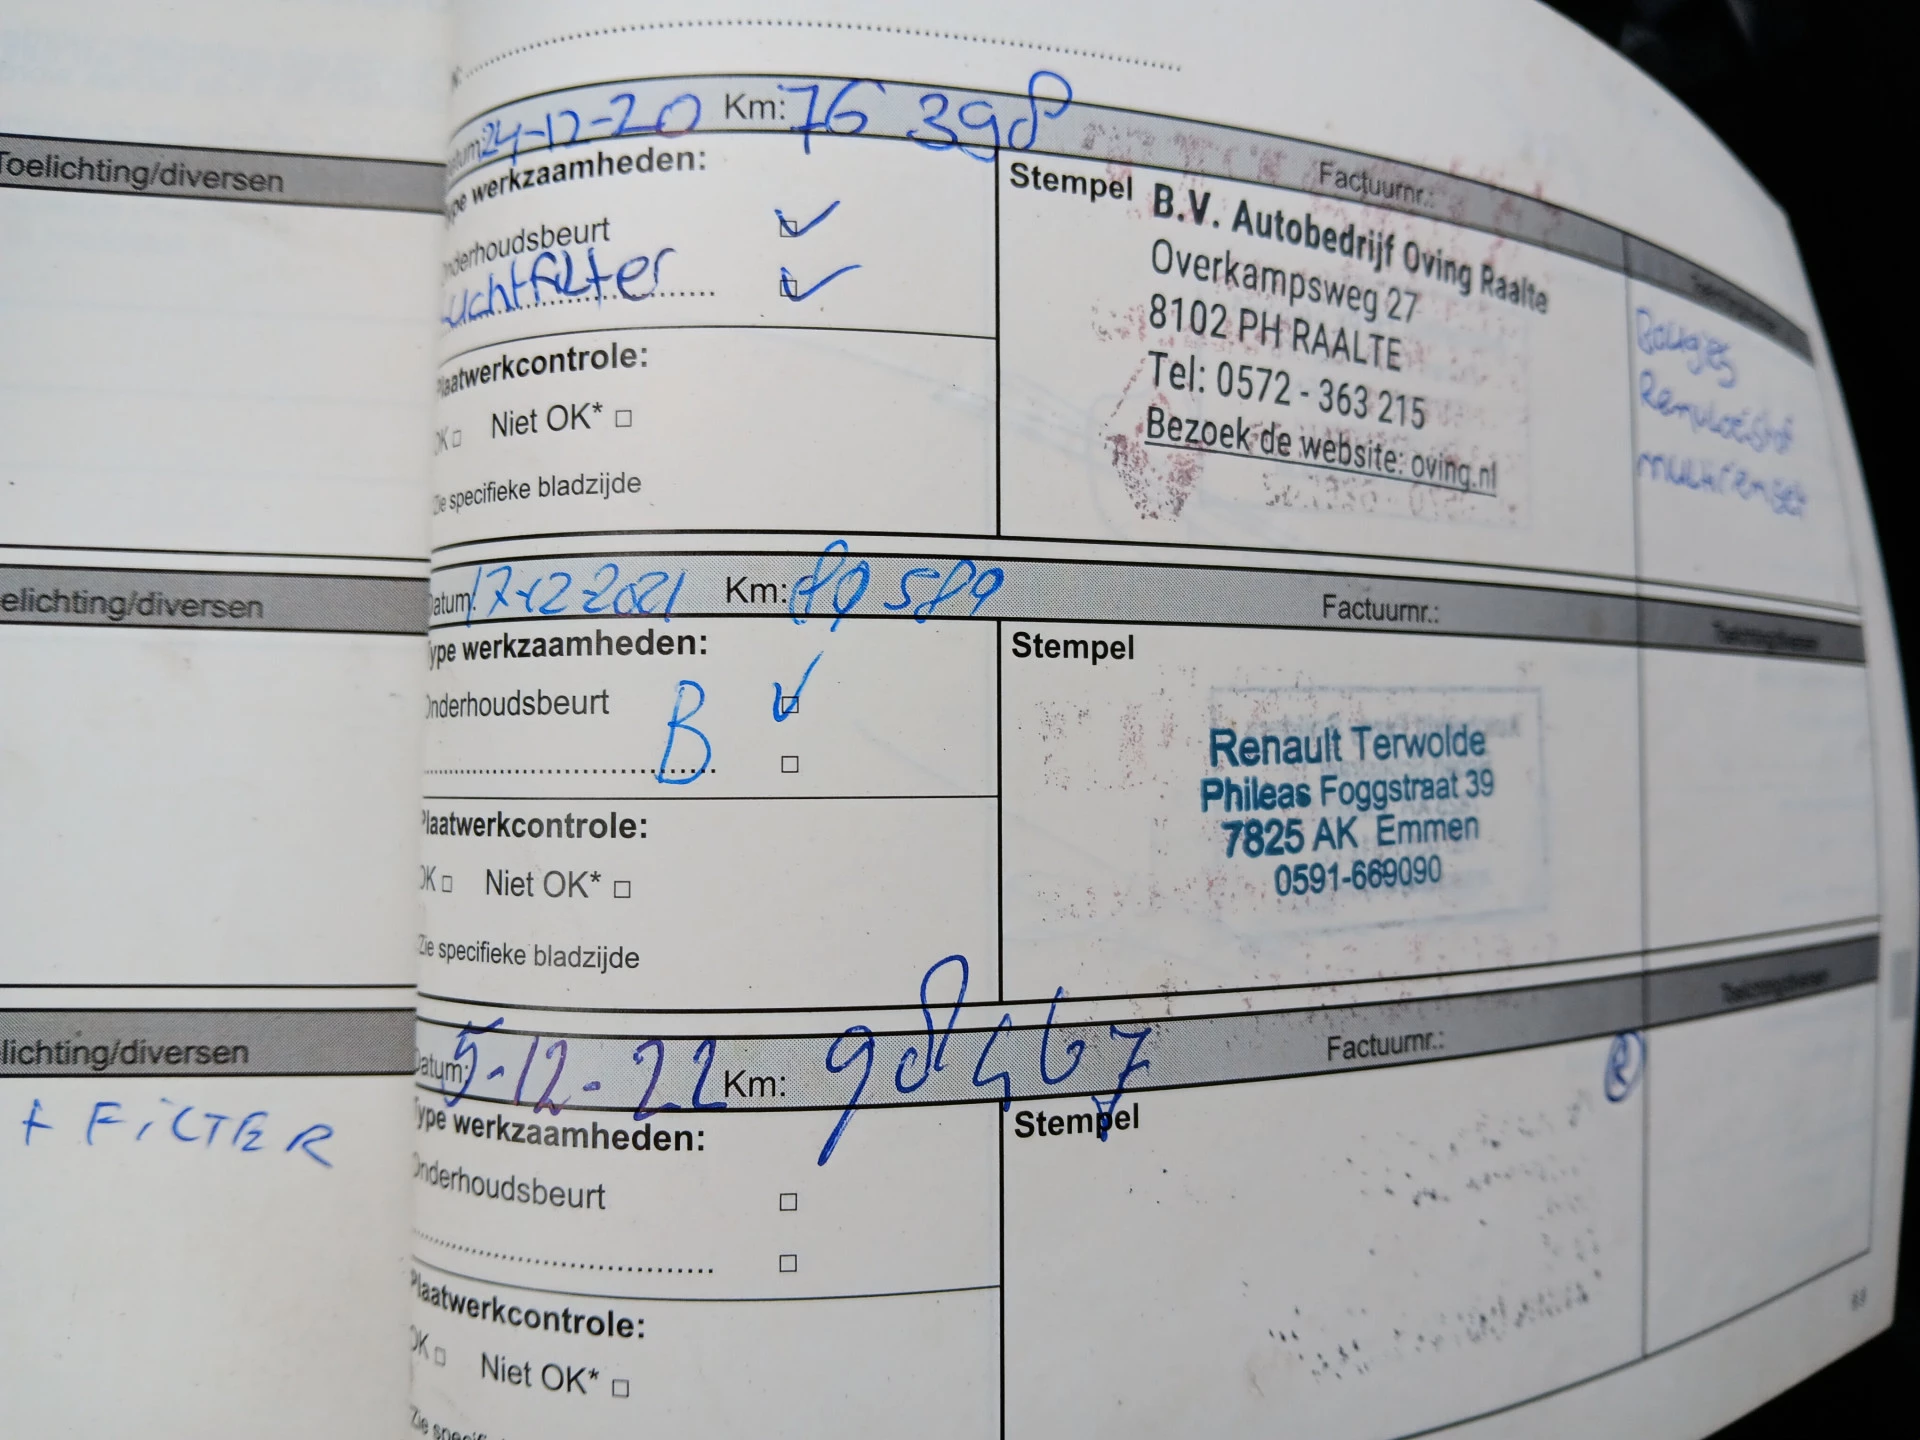 Toelichting/diversen
elichting/diversen
lichting/diversen
+ FILTER
24-12-20 Km: 76 398
Factuurnr.:
ype werkzaamheden:
nderhoudsbeurt
uchtfilter
Plaatwerkcontrole:
OK Niet OK*
Zie specifieke bladzijde
Stempel
B.V. Autobedrijf Oving Raalte
Overkampsweg 27
8102 PH RAALTE
Tel: 0572 - 363 215
Bezoek de website: oving.nl
Bougies
Remvloeistof
multiriemset
Datum: 17-12-2021 Km: 89 589
Factuurnr.:
Type werkzaamheden:
Onderhoudsbeurt B
Plaatwerkcontrole:
OK Niet OK*
Zie specifieke bladzijde
Stempel
Renault Terwolde
Phileas Foggstraat 39
7825 AK Emmen
0591-669090
Datum: 5-12-22 Km: 98467
Factuurnr.:
Type werkzaamheden:
Onderhoudsbeurt
Plaatwerkcontrole:
OK Niet OK*
Stempel